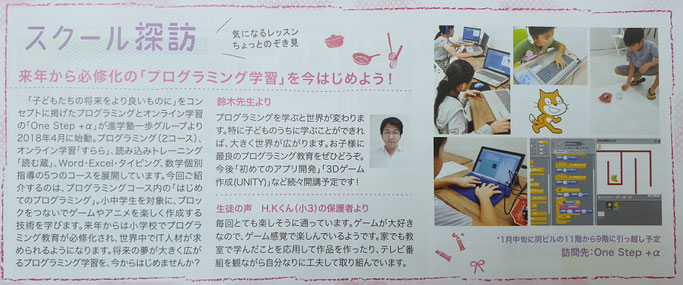 スクール探訪
気になるレッスン
ちょっとのぞき見
来年から必修化の「プログラミング学習」を今はじめよう!
「子どもたちの将来をより良いものに」をコン
セプトに掲げたプログラミングとオンライン学習
の「One Step +α」が進学塾一歩グループより
2018年4月に始動。プログラミング(2コース)、
オンライン学習「すらら」、読み込みトレーニング
「読む蔵」、Word・Excel・タイピング、数学個別
指導の5つのコースを展開しています。今回ご紹
介するのは、プログラミングコース内の「はじめ
てのプログラミング」。小中学生を対象に、ブロッ
クをつないでゲームやアニメを楽しく作成する
技術を学びます。来年からは小学校でプログラ
ミング教育が必修化され、世界中でIT人材が求
められるようになります。将来の夢が大きく広が
るプログラミング学習を、今からはじめませんか?
鈴木先生より
プログラミングを学ぶと世界が変わりま
す。特に子どものうちに学ぶことができれ
ば、大きく世界が広がります。お子様に
最良のプログラミング教育をぜひどうぞ。
今後「初めてのアプリ開発」「3Dゲーム
作成(UNITY)」など続々開講予定です!
生徒の声 H.Kくん(小3)の保護者より
毎回とても楽しそうに通っています。ゲームが大好き
なので、ゲーム感覚で楽しんでいるようです。家でも教
室で学んだことを応用して作品を作ったり、テレビ番
組を観ながら自分なりに工夫して取り組んでいます。
*1月中旬に同ビルの11階から9階に引っ越し予定
訪問先:One Step +α